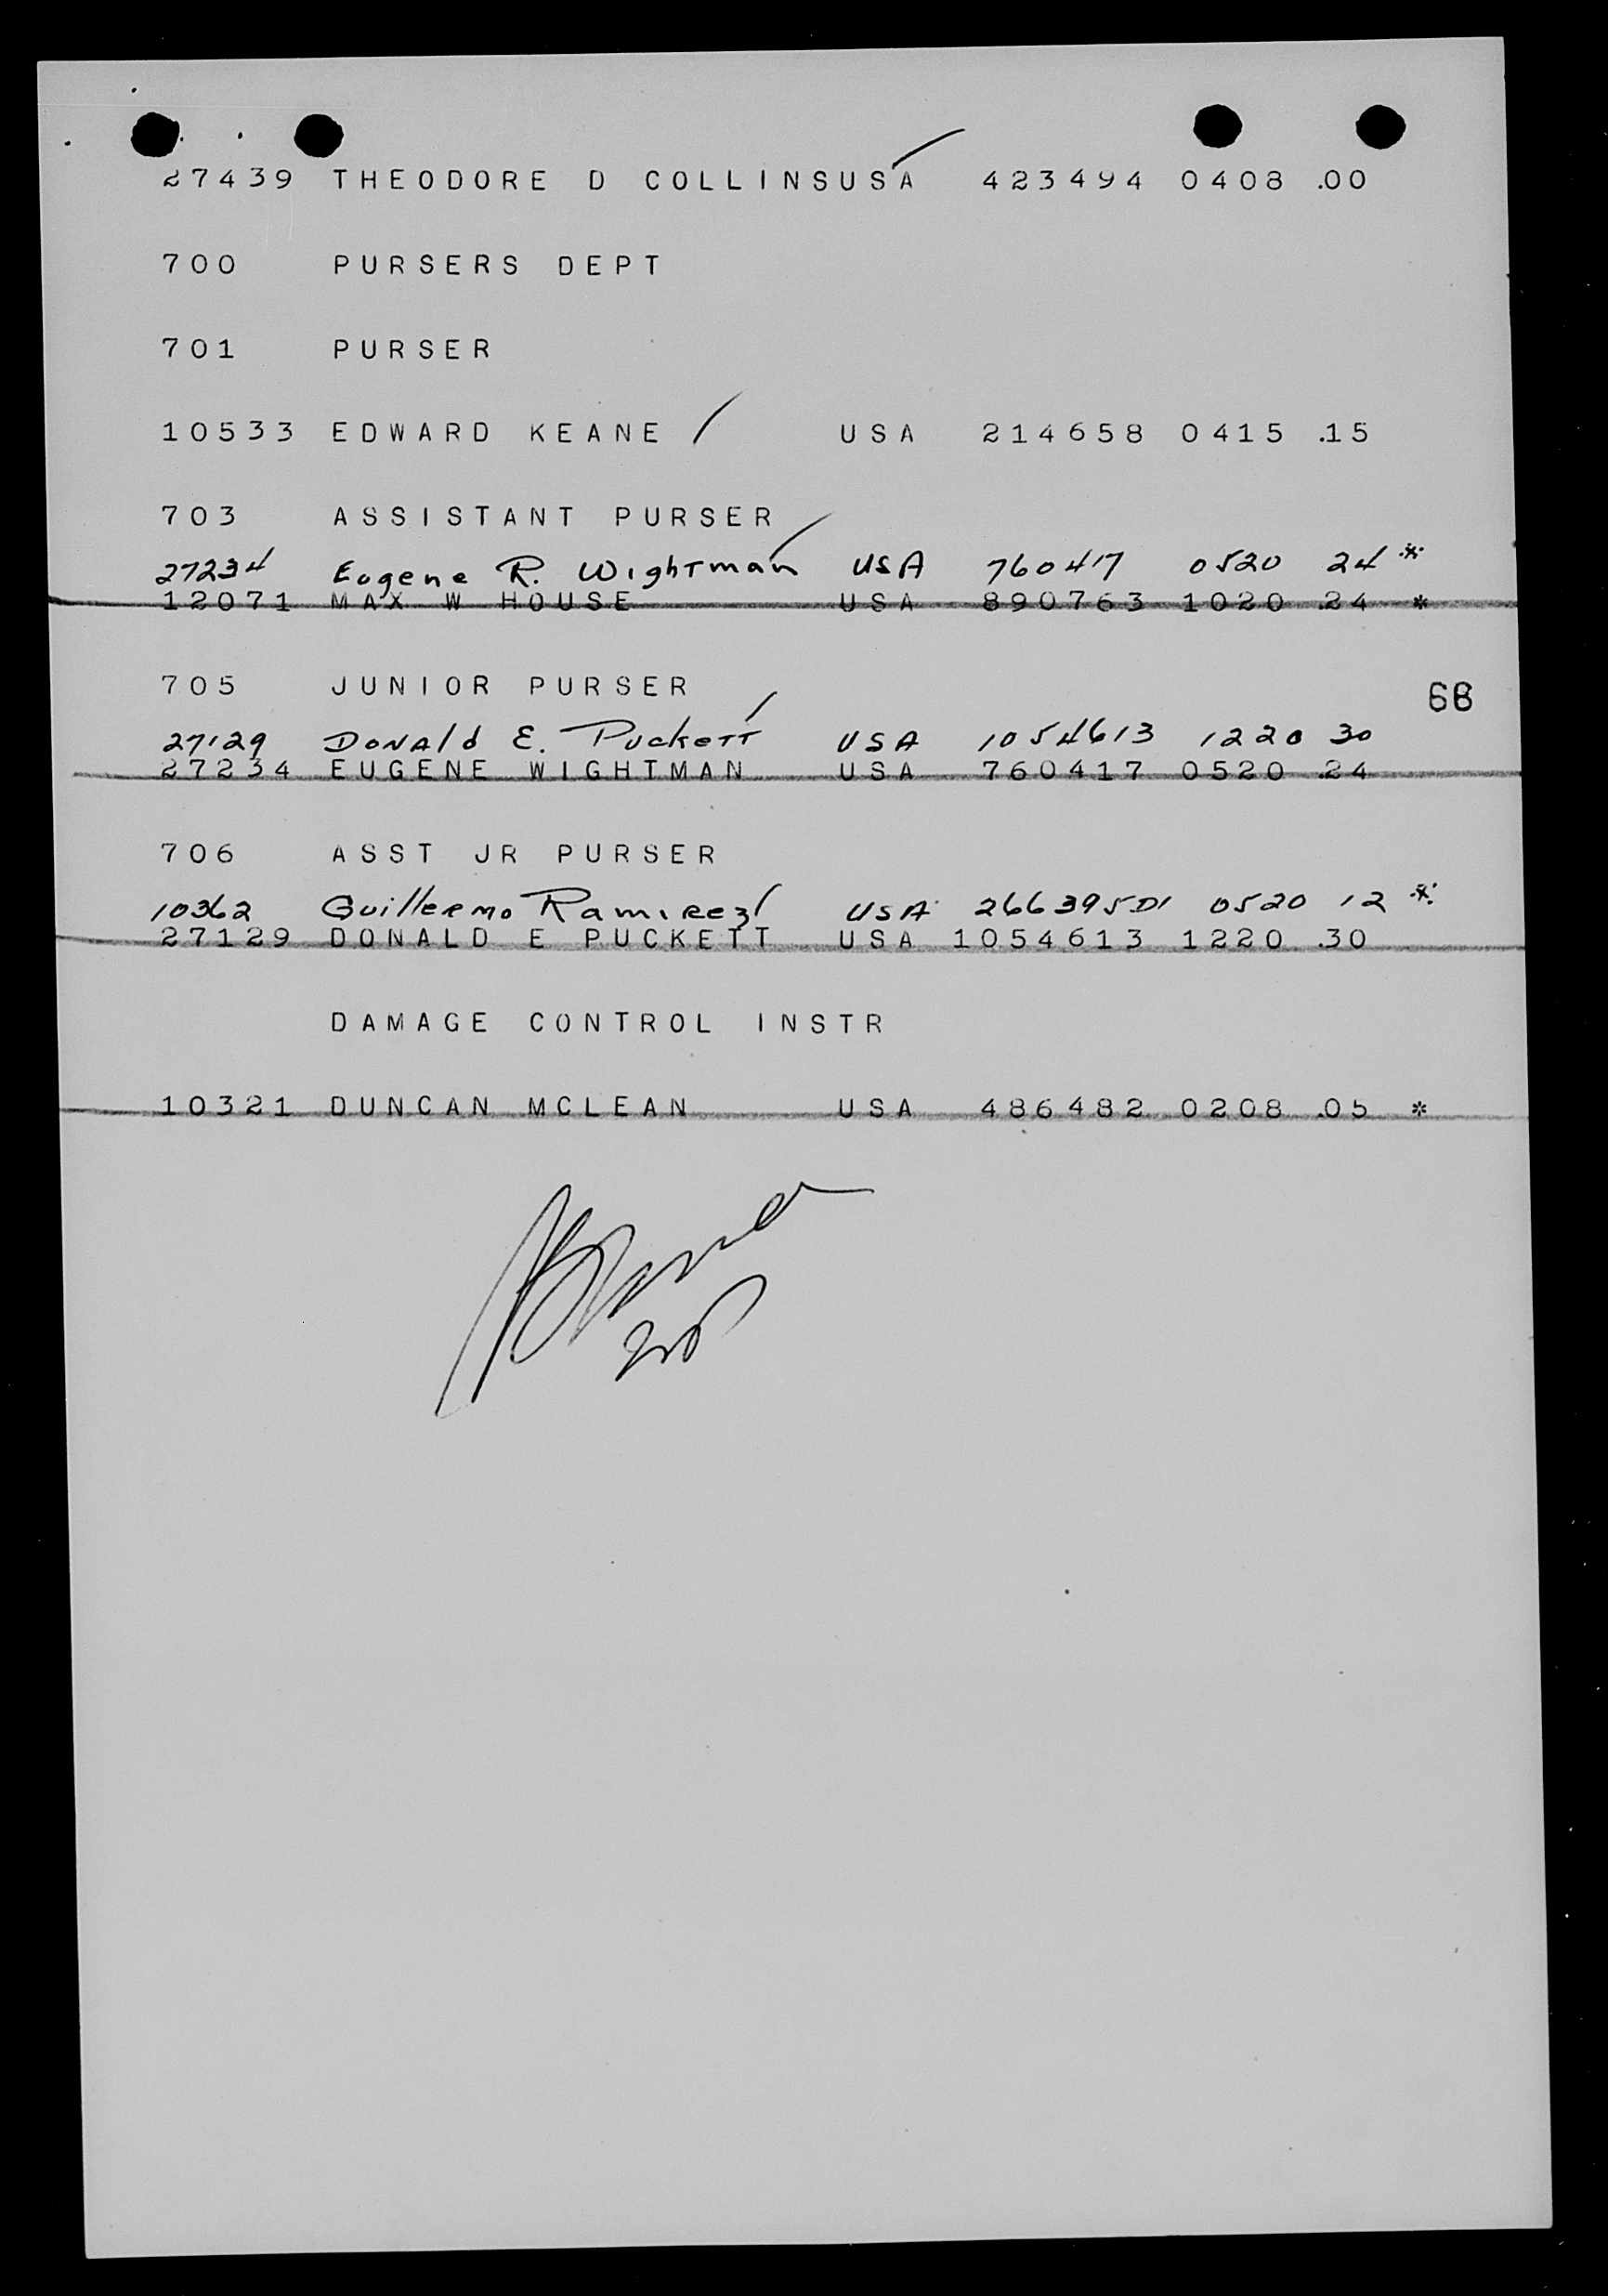 27439 THEODORE D COLLINSUSA 423494 0408 .00
700 PURSERS DEPT
701 PURSER
10533 EDWARD KEANE / USA 214658 0415 .15
703 ASSISTANT PURSER
27234 Eugene R. Wightman USA 760417 0520 24 *
12071 MAX W HOUSE USA 890763 1020 .24 *
705 JUNIOR PURSER
68
27129 Donald E. Puckett USA 1054613 1220 30
27234 EUGENE WIGHTMAN USA 760417 0520 .24
706 ASST JR PURSER
10362 Guillermo Ramirez USA 266395D1 0520 12 *
27129 DONALD E PUCKETT USA 1054613 1220 .30
DAMAGE CONTROL INSTR
10321 DUNCAN MCLEAN USA 486482 0208 .05 *